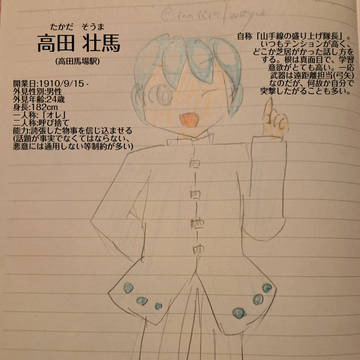 たかだ そうま
高田 壮馬
(高田馬場駅)
開業日:1910/9/15・
外見性別:男性
外見年齢:24歳
身長:182cm
一人称:「オレ」
二人称:呼び捨て
能力:誇張した物事を信じ込ませる
(話題が事実でなくてはならない、
悪意には通用しない等制約が多い)
自称「山手線の盛り上げ隊長」。
いつもテンションが高く、
どこか芝居がかった話し方を
する。根は真面目で、学習
意欲がとても高い。一応
武器は遠距離担当(弓矢)
なのだが、何故か自分で
突撃したがることも多い。